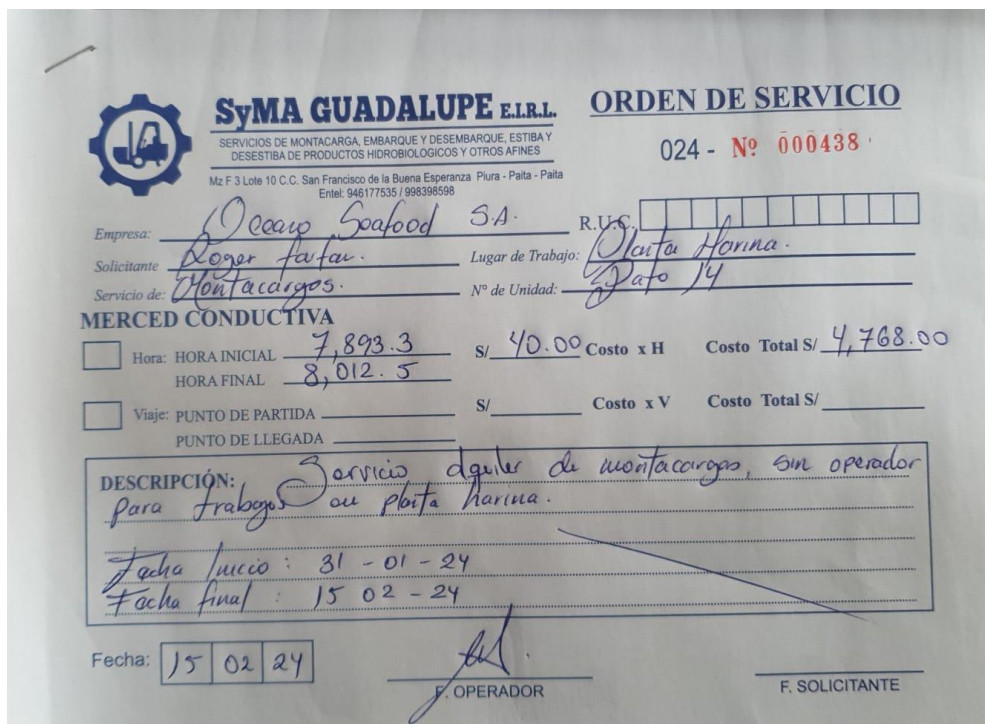 SyMA GUADALUPE E.I.R.L.
SERVICIOS DE MONTACARGA, EMBARQUE Y DESEMBARQUE, ESTIBA Y
DESESTIBA DE PRODUCTOS HIDROBIOLOGICOS Y OTROS AFINES
Mz F 3 Lote 10 C.C. San Francisco de la Buena Esperanza Piura - Paita - Paita
Entel: 946177535 / 998398598
ORDEN DE SERVICIO
024 - Nº 000438
Empresa: Oceano Seafood S.A. R.U.C.
Solicitante Roger farfan. Lugar de Trabajo: Planta Harina.
Servicio de: Montacargos. Nº de Unidad: Pato 14
MERCED CONDUCTIVA
Hora: HORA INICIAL 7,893.3 S/ 40.00 Costo x H Costo Total S/ 4,768.00
HORA FINAL 8,012.5
Viaje: PUNTO DE PARTIDA S/ Costo x V Costo Total S/
PUNTO DE LLEGADA
DESCRIPCIÓN: Servicio alquiler de montacargos, sin operador
para trabajos en planta harina.
Fecha Inicio : 31 - 01 - 24
Fecha final : 15 02 - 24
Fecha: 15 02 24
F. OPERADOR
F. SOLICITANTE